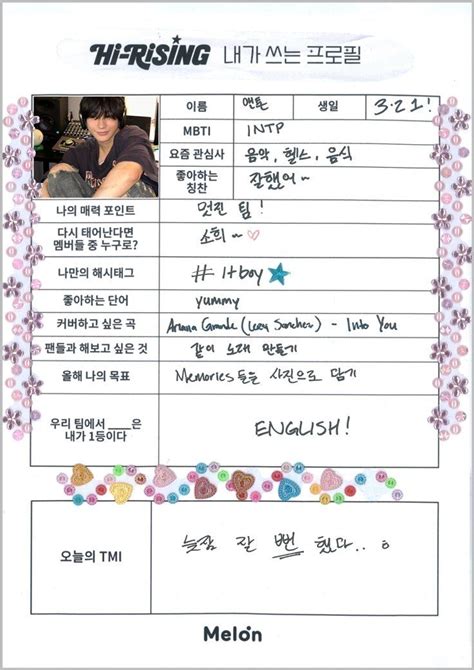 Hi-RiSiNG 내가 쓰는 프로필
이름 앤톤 생일 3.21!
MBTI INTP
요즘 관심사 음악, 헬스, 음식
좋아하는 칭찬 잘했어~
나의 매력 포인트 멋진 팀!
다시 태어난다면 멤버들 중 누구로? 소희~♡
나만의 해시태그 #itboy★
좋아하는 단어 yummy
커버하고 싶은 곡 Ariana Grande (Leey Sanchez) - Into You
팬들과 해보고 싶은 것 같이 노래 만들기
올해 나의 목표 Memories들을 사진으로 담기
우리 팀에서 ____은 내가 1등이다 ENGLISH!
오늘의 TMI 늦잠 잘 뻔 했다..
Melon